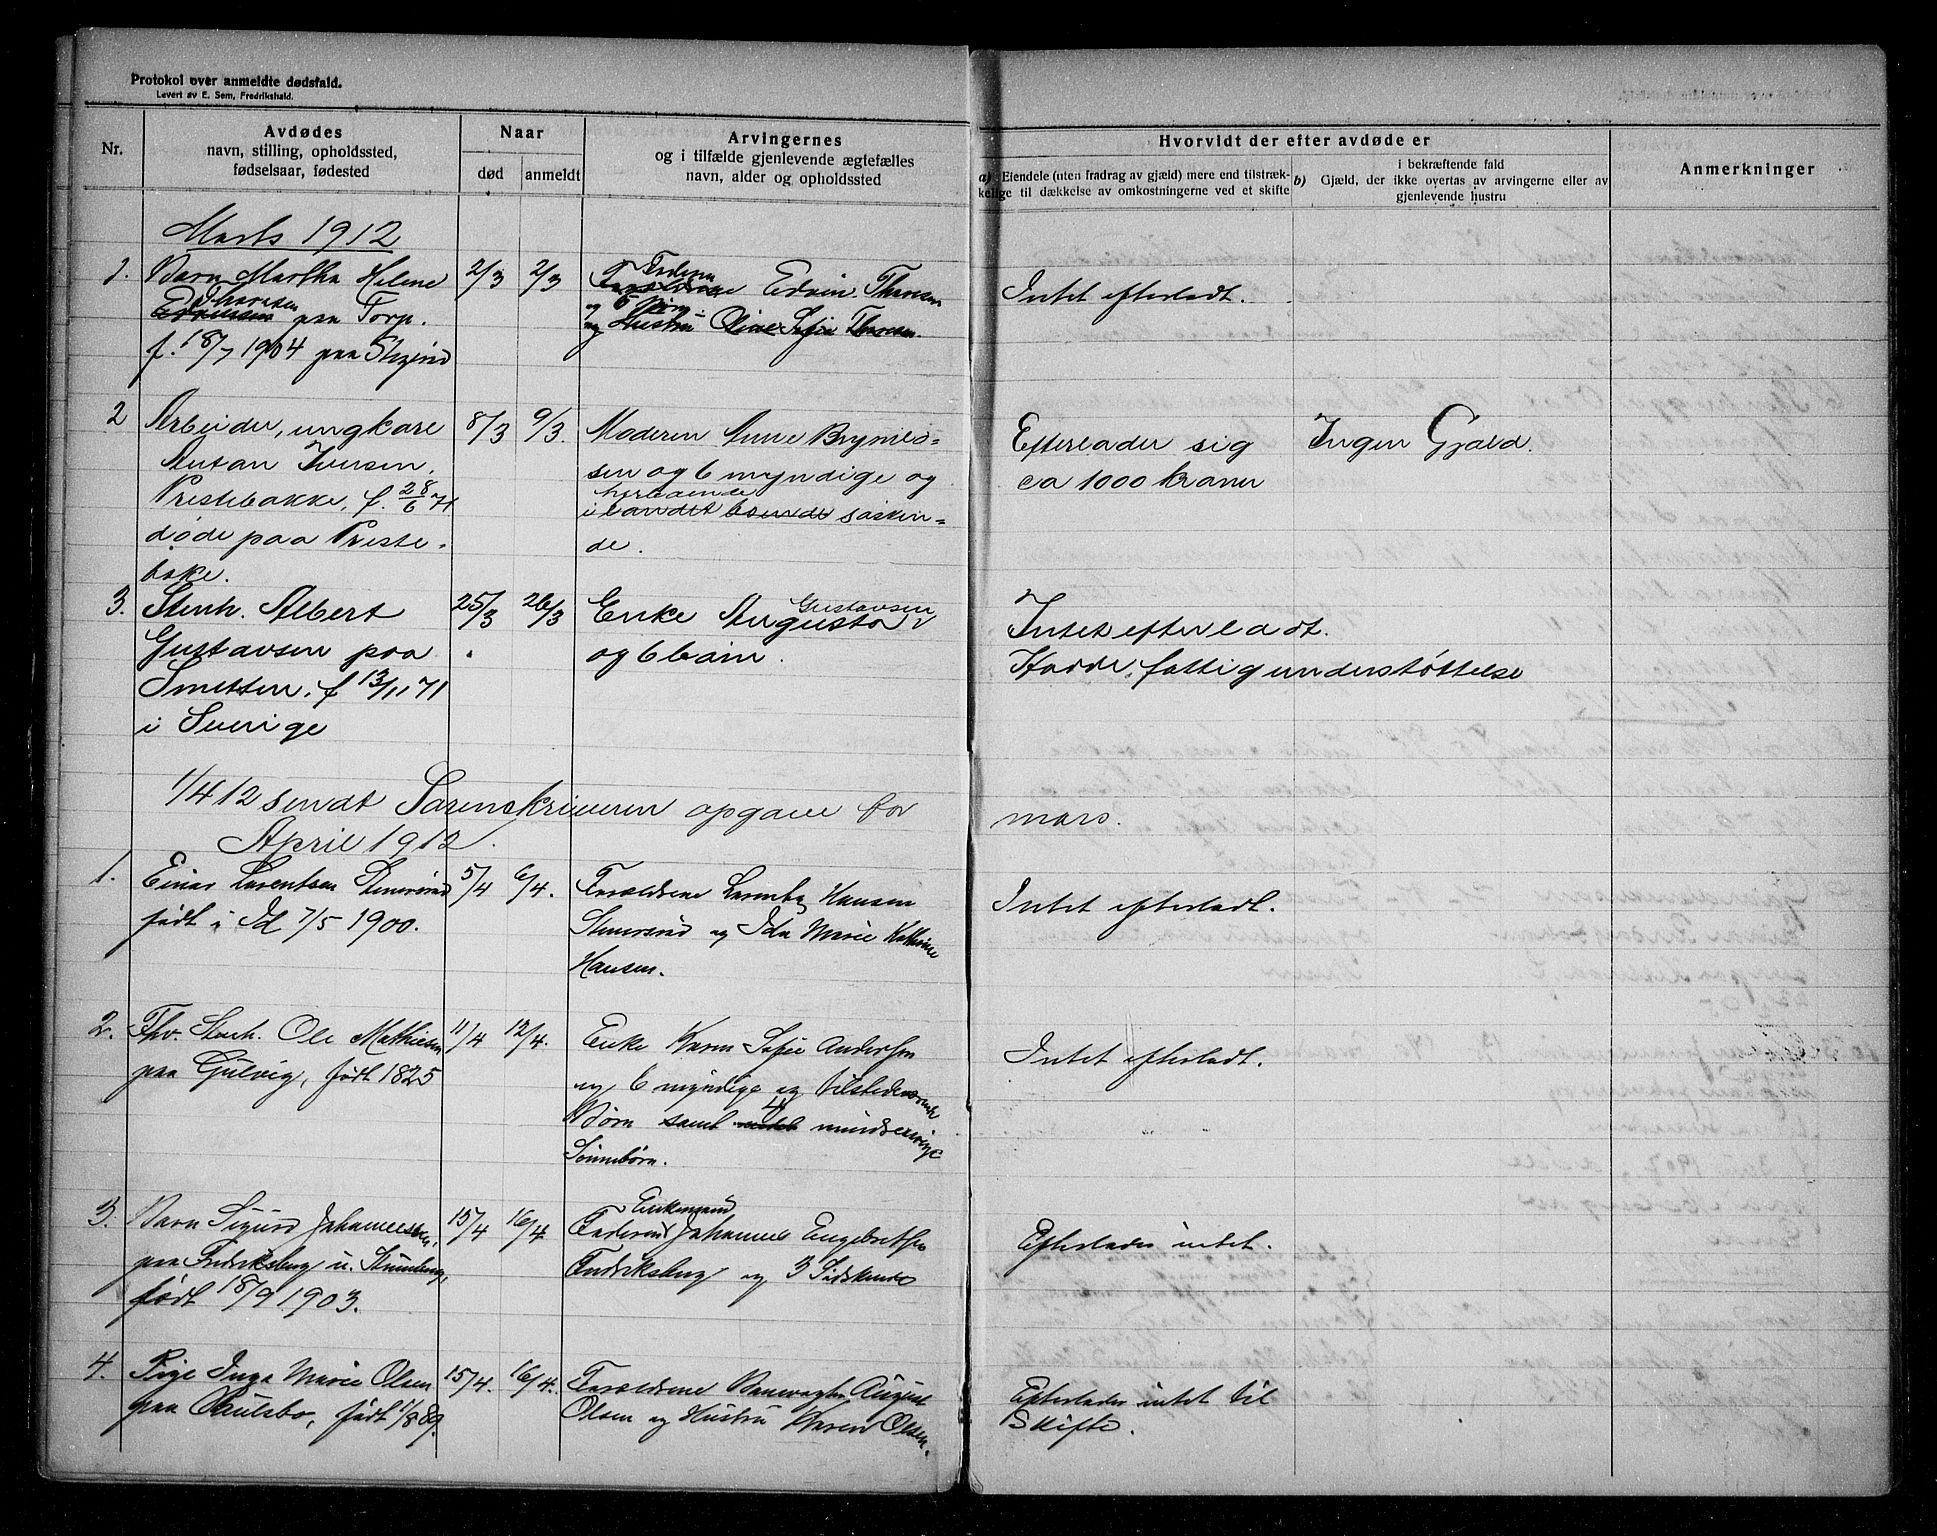 Protokol over anmeldte dødsfald.
Levert av E. Sem, Fredrikshald.
Nr.
Avdødes
navn, stilling, opholdssted,
fødselsaar, fødested
Naar
død
anmeldt
Arvingernes
og i tilfælde gjenlevende ægtefælles
navn, alder og opholdssted
Hvorvidt der efter avdøde er
a) Eiendele (uten fradrag av gjæld) mere end tilstræk-
kelige til dækkelse av omkostningerne ved et skifte
i bekræftende fald
b) Gjæld, der ikke overtas av arvingerne eller av
gjenlevende hustru
Anmerkninger
Marts 1912
1. Barn Martha Helene
paa Torp.
f. 18/7 1904 paa
2/3
2/3
Faderen
Edvin Thoresen
og 6 Børn
og Hustru Oline Sofie Thoresen.
Intet efterladt.
2 Arbeider, ungkare
Anton Iversen,
Prestebakke, f. 28/6 71
døde paa Preste-
bake.
8/3
9/3.
Moderen Anne Brynild-
sen og 6 myndige og
herboende
i landet boende søsken-
de.
Efterlader sig
ca 1000 kroner
Ingen Gjæld.
3. Stenh. Albert
Gustavsen paa
f 13/11 71
i Sverige
25/3
26/3
Gustavsen
Enke Augusta
og 6 barn.
Intet efterladt.
Havde fattigunderstøttelse
1/4 12 sendt Sorenskriveren opgave for
mars.
April 1912.
1. Einar Larentsen Stensrød
født i Id 7/5 1900.
5/4
6/4.
Forældrene Larentz Hansen
Stensrød og Ida Marie Kathrine
Hansen.
Intet efterladt.
2. Fhv. Stenh. Ole Mathiesen
paa Gulvig, født 1825
11/4
12/4.
Enke Karen Sofie Andersen
og 6 myndige og tilstedeværende
Børn samt 4 mindreaarige
Sønnebørn.
Intet efterladt.
3. Barn Sigurd Johannessen,
paa Fredriksberg u.
født 18/9 1903.
15/4
16/4.
Enkemand
Faderen Johannes Engebretsen
Fredriksberg og 3 Sødskende
Efterlader intet.
4. Pige Inga Marie Olsen
paa Bulsbo, født 1/8 89.
15/4.
16/4.
Forældrene Banevogter August
Olsen og Hustru Karen Olsen.
Efterlader intet til
Skifte.